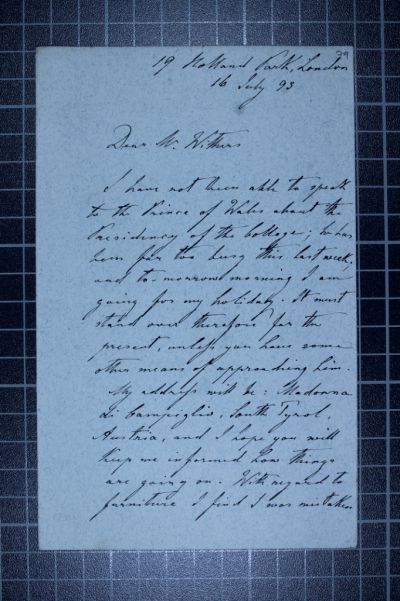 39
19 Holland Park, London
16 July 93
Dear Mr. Withers
I have not been able to speak
to the Prince of Wales about the
Presidency of the College; he has
been far too busy this last week,
and to-morrow morning I am
going for my holiday. It must
stand over therefore for the
present, unless you have some
other means of approaching him.
My address will be: Madonna
di Campiglio, South Tyrol,
Austria, and I hope you will
keep me informed how things
are going on. With regard to
furniture I find I was mistaken